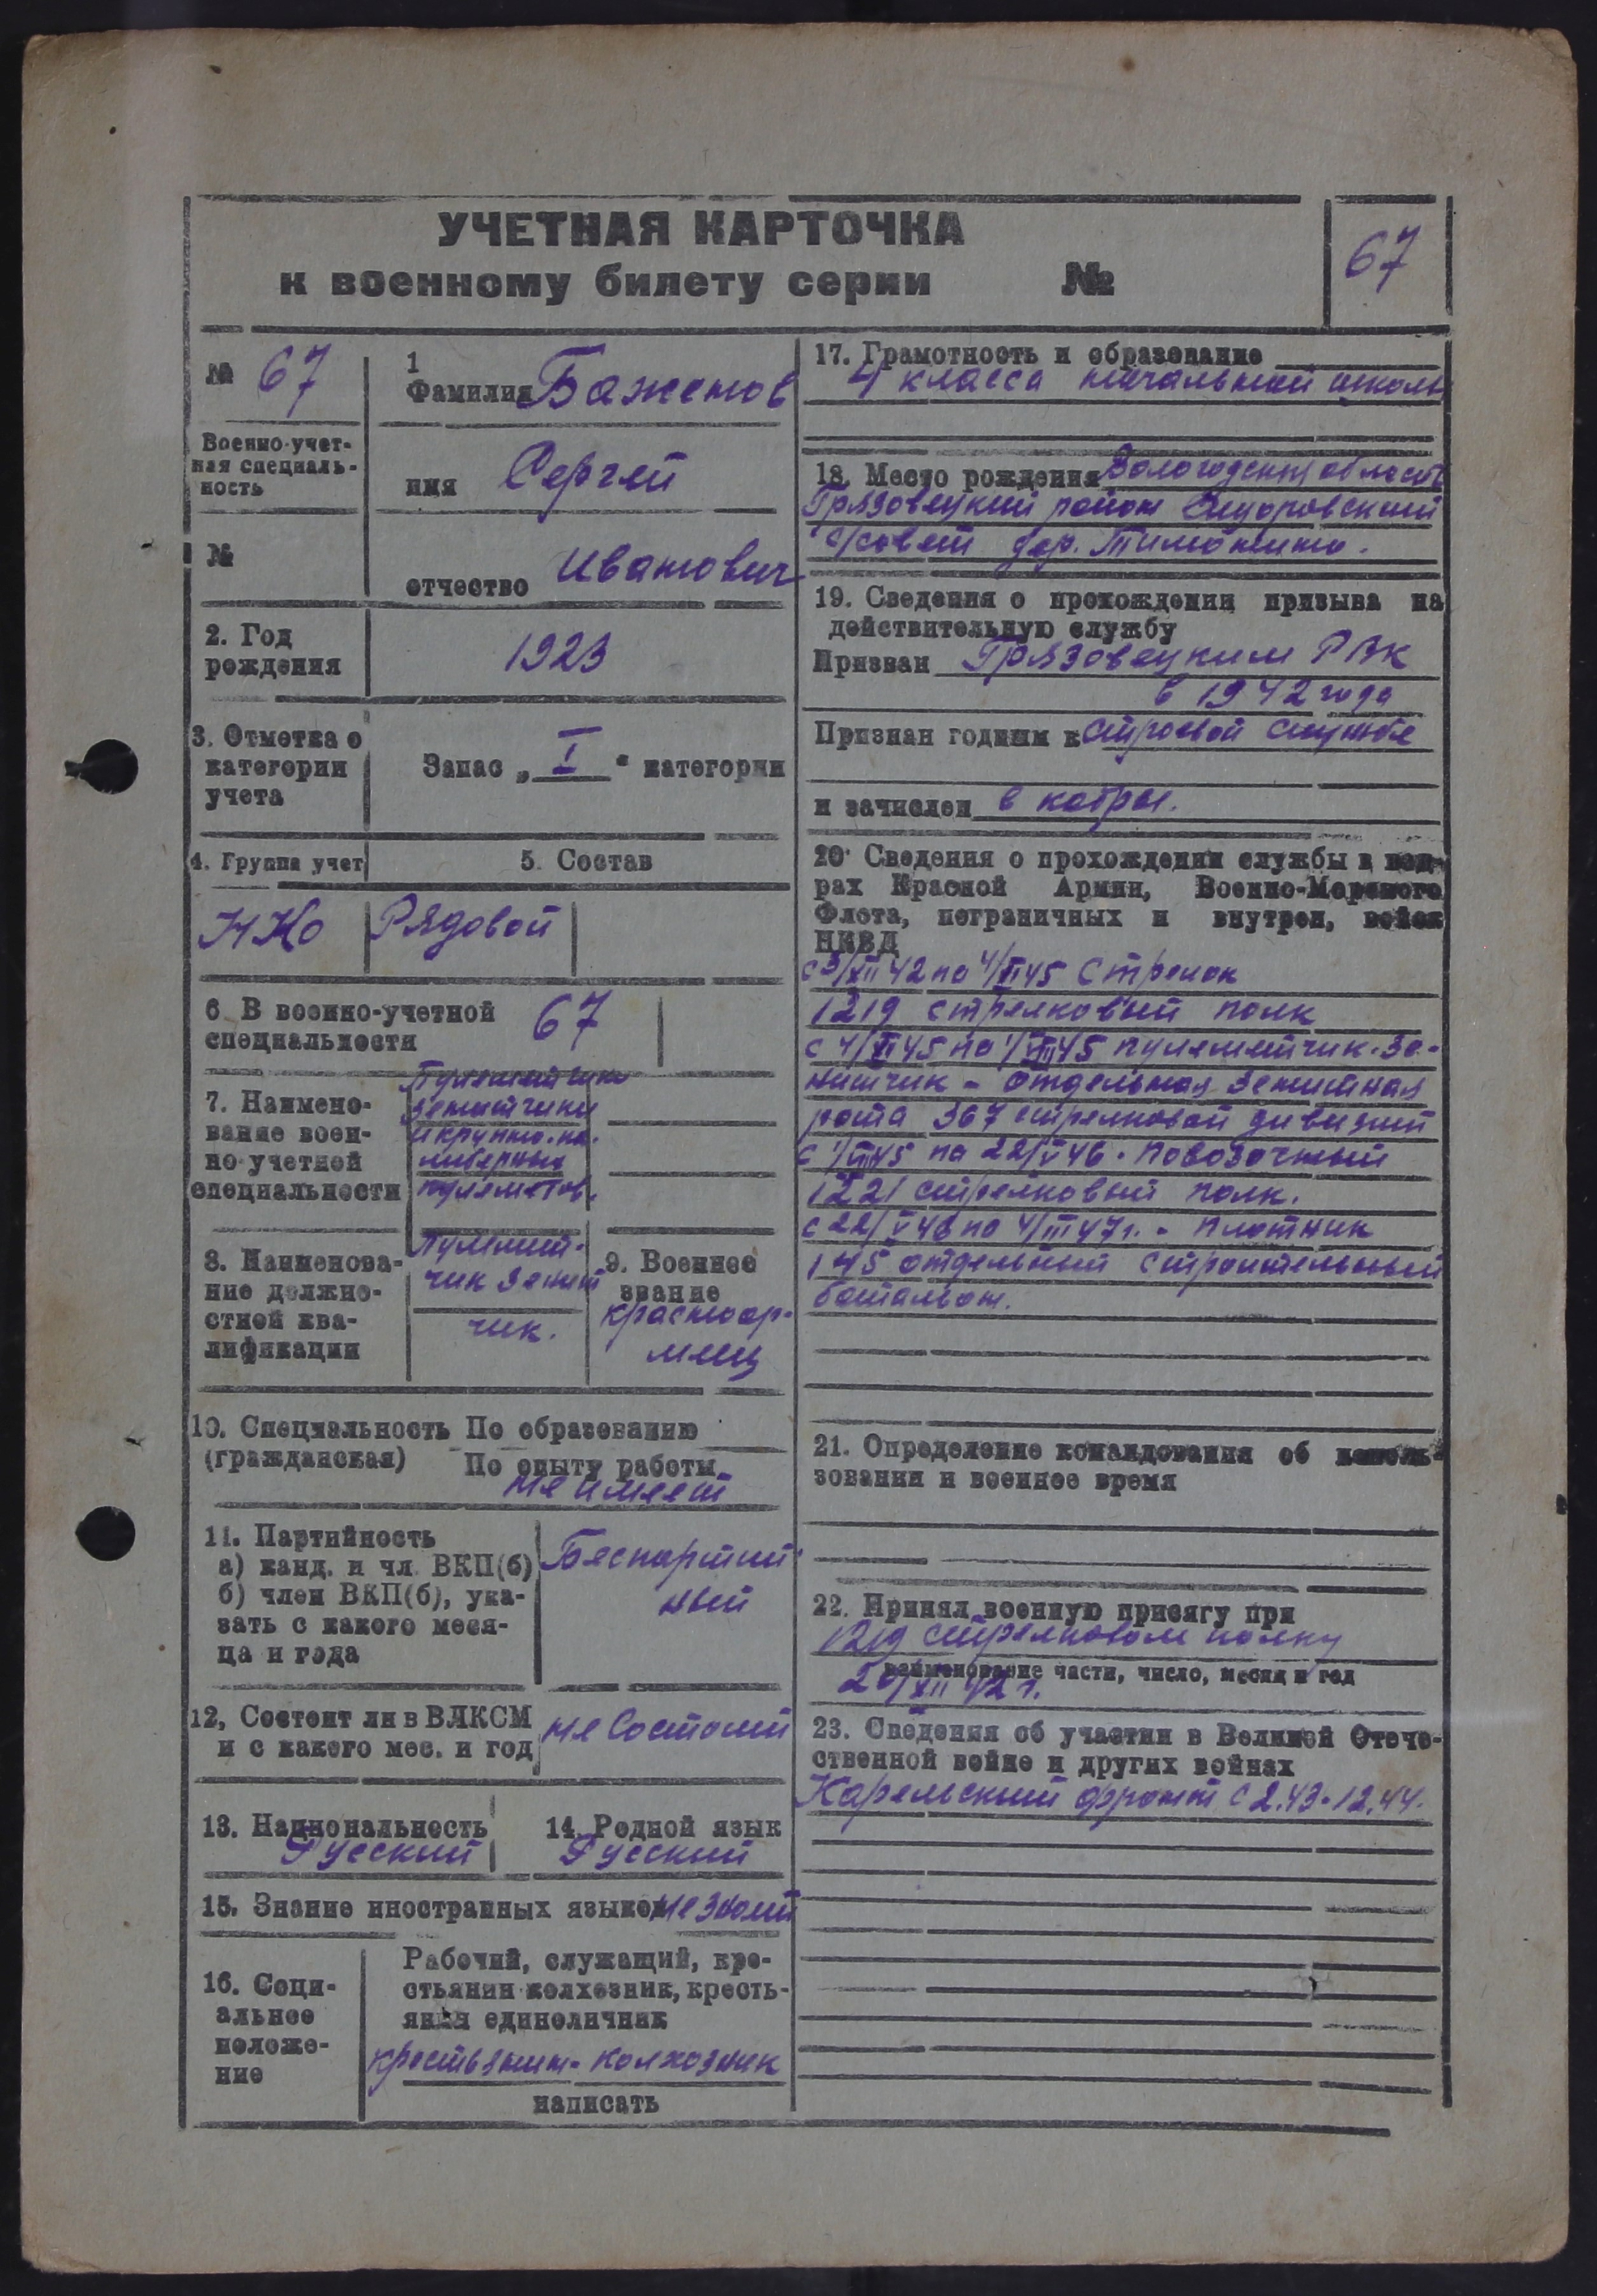 УЧЕТНАЯ КАРТОЧКА
к военному билету серии №
67
№ 67
1
Фамилия Баженов
Военно-учет-
ная специаль-
ность
имя Сергей
№
отчество Иванович
2. Год
рождения
1923
3. Отметка о
категории
учета
Запас „ I " категории
4. Группа учет
5. Состав
НКО Рядовой
6. В военно-учетной
специальности
67
7. Наимено-
вание воен-
но-учетной
специальности
Пулеметчики
зенитчики
и крупно-ка-
либерных
пулеметов.
8. Наименова-
ние должно-
стной ква-
лификации
Пулемет-
чик зенит
чик.
9. Военное
звание
красноар-
меец
10. Специальность По образованию
(гражданская) По опыту работы
не имеет
11. Партийность
а) канд. и чл. ВКП(б)
б) член ВКП(б), ука-
зать с какого меся-
ца и года
Беспартий
ный
12, Состоит ли в ВЛКСМ
и с какого мес. и год
не состоит
13. Национальность
Русский
14. Родной язык
Русский
15. Знание иностранных языков не знает
16. Соци-
альное
положе-
ние
Рабочий, служащий, кре-
стьянин колхозник, кресть-
янин единоличник
крестьянин-колхозник
написать
17. Грамотность и образование
4 класса начальной школы
18. Место рождения Вологодская область
Грязовецкий район Сидоровский
с/совет дер. Тимонино.
19. Сведения о прохождении призыва на
действительную службу
Призван Грязовецким РВК
в 1942 года
Признан годным к строевой службе
и зачислен в кадры.
20. Сведения о прохождении службы в кад-
рах Красной Армии, Военно-Морского
Флота, пограничных и внутрен, войск
НКВД
с 3/XII 42 по 4/VI 45 Стрелок
1219 стрелковый полк
с 4/VI 45 по 1/VIII 45 пулеметчик-зе-
нитчик - отдельная зенитная
рота 367 стрелковой дивизии
с 1/VIII 45 по 22/V 46. Повозочный
1221 стрелковый полк.
с 22/V 46 по 4/III 47 г. - плотник
145 отдельный строительный
батальон.
21. Определение командования об исполь-
зовании и военное время
22. Принял военную присягу при
1219 стрелковом полку
наименование части, число, месяц и год
20/XII 42 г.
23. Сведения об участии в Великой Отече-
ственной войне и других войнах
Карельский фронт с 2.43-12.44.